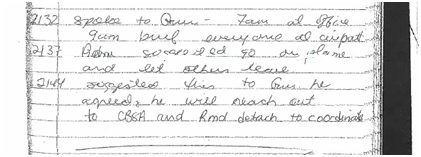 2132 spoke to Gwn - 7am at office
9am brief everyone at airport
2137 Adam so needed go on plane
and let others leave
2144 suggested this to Gwn he
agreed, he will reach out
to CBSA and Rmd detach to coordinate